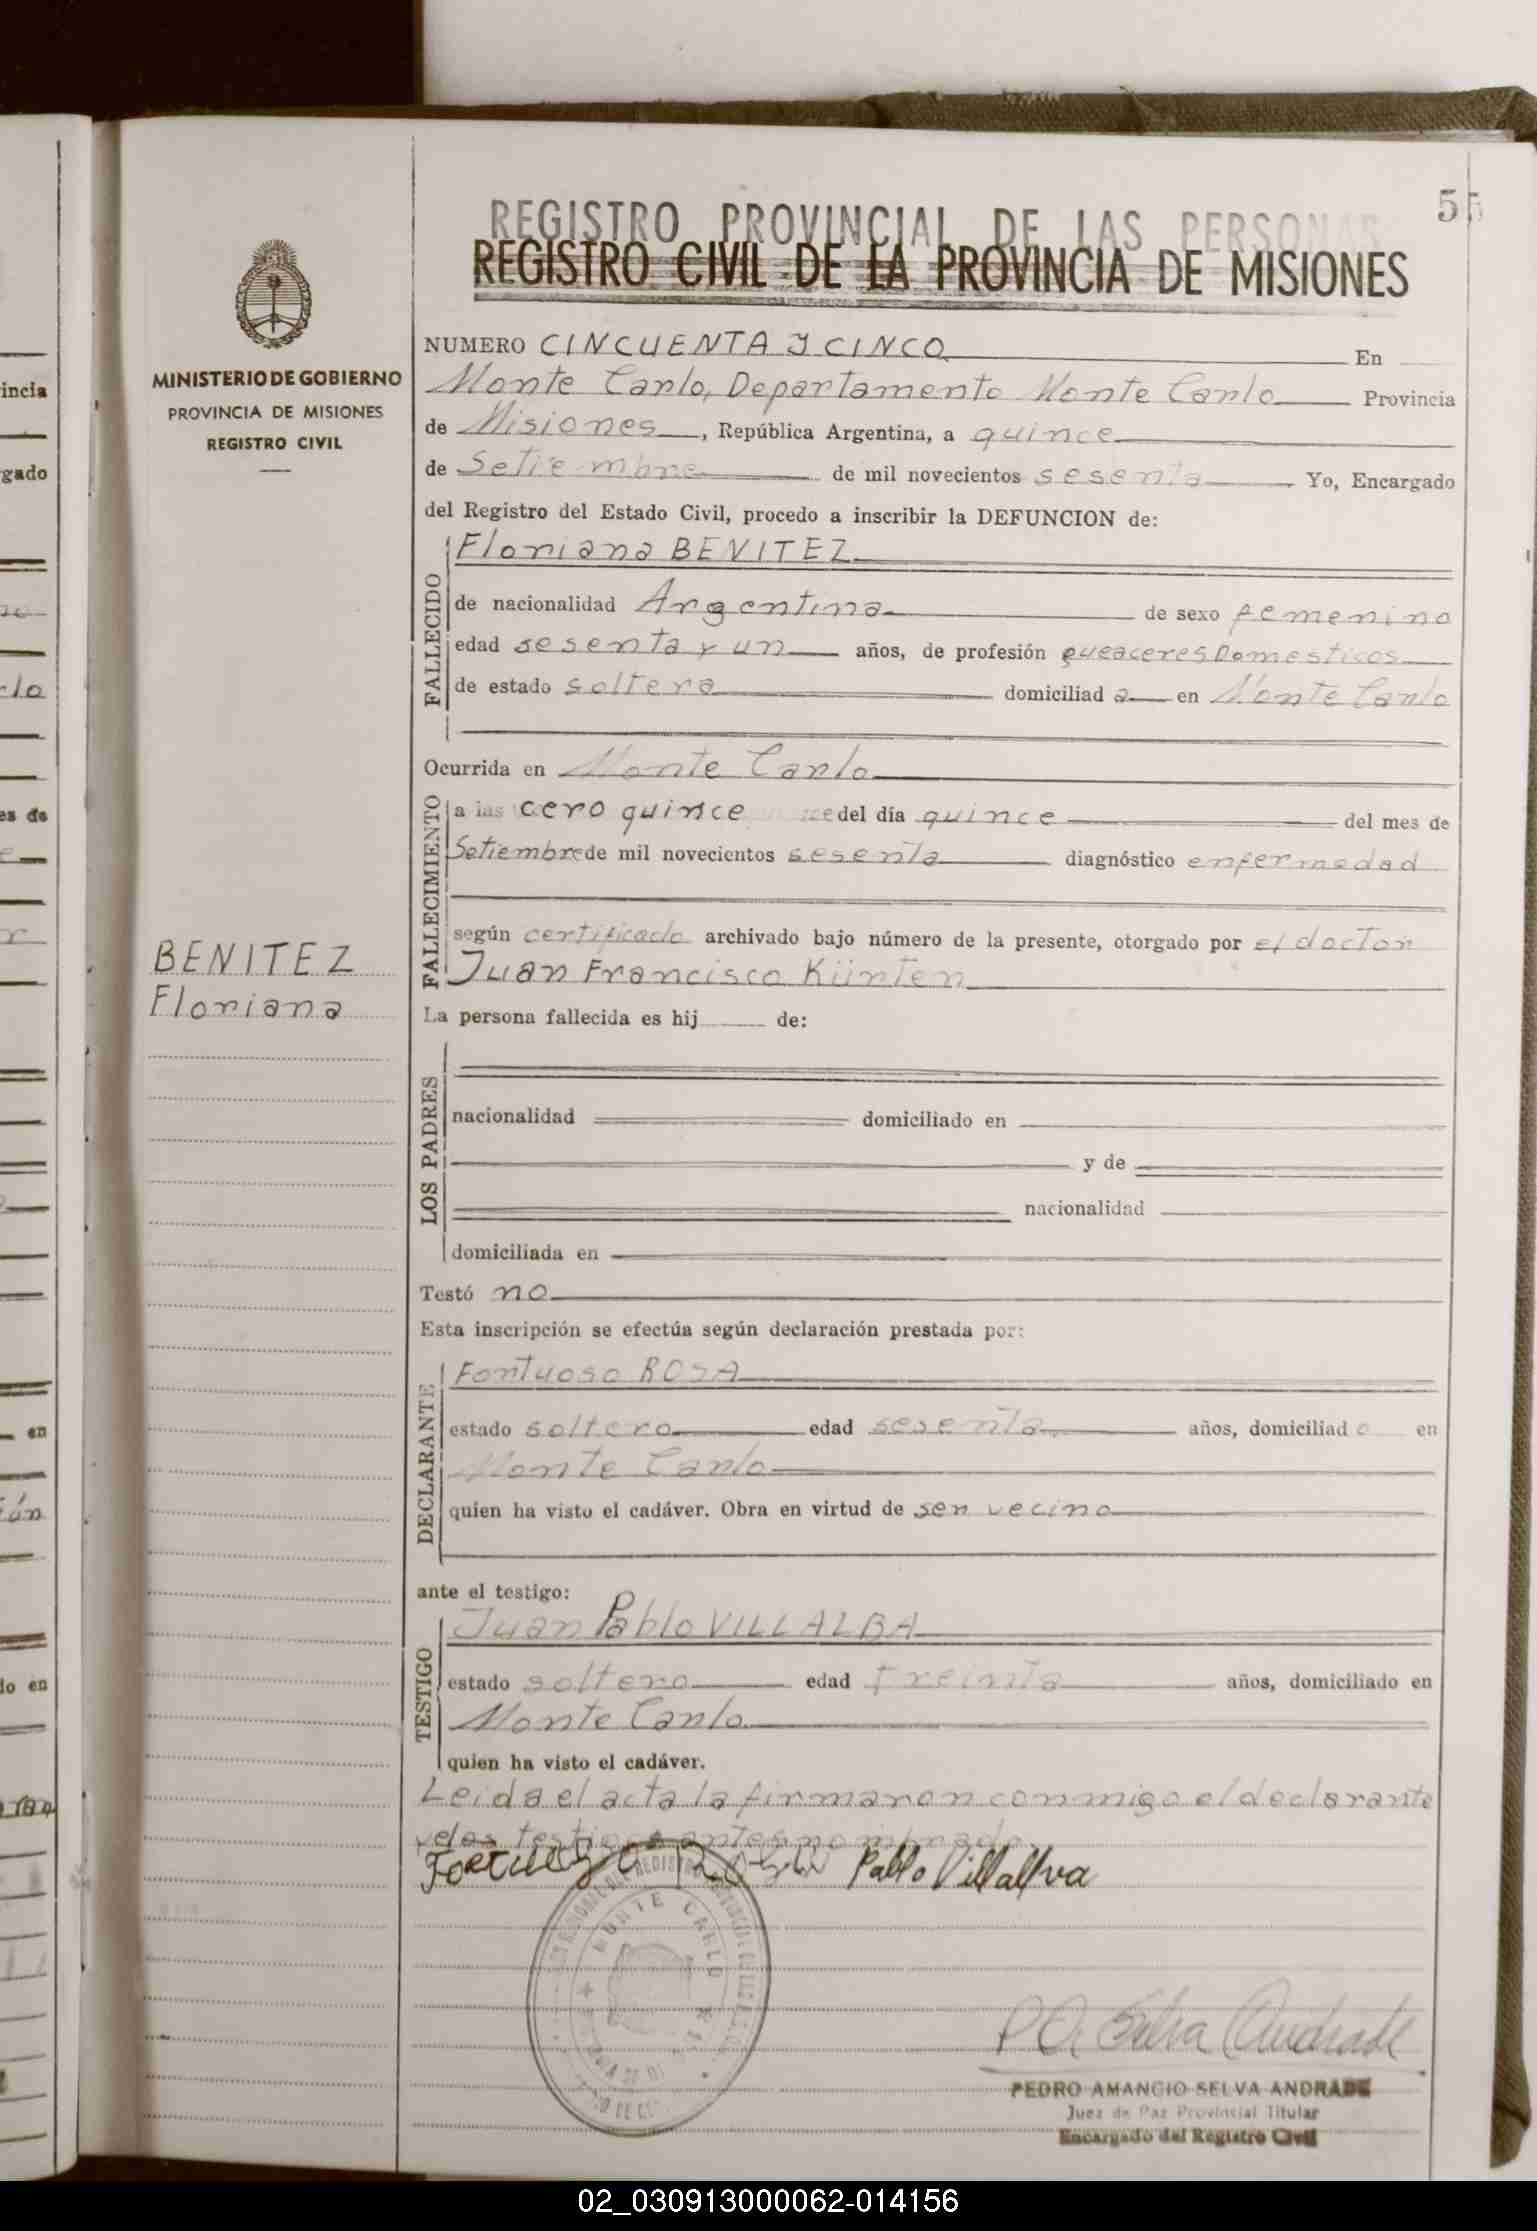 55
REGISTRO PROVINCIAL DE LAS PERSONAS
REGISTRO CIVIL DE LA PROVINCIA DE MISIONES
MINISTERIO DE GOBIERNO
PROVINCIA DE MISIONES
REGISTRO CIVIL
BENITEZ
Floriana
NUMERO CINCUENTA Y CINCO En
Monte Carlo, Departamento Monte Carlo Provincia
de Misiones, República Argentina, a quince
de Setiembre de mil novecientos sesenta Yo, Encargado
del Registro del Estado Civil, procedo a inscribir la DEFUNCION de:
FALLECIDO
Floriana BENITEZ
de nacionalidad Argentina de sexo femenino
edad sesenta y un años, de profesión queaceres Domesticos
de estado soltera domiciliad a en Monte Carlo
Ocurrida en Monte Carlo
FALLECIMIENTO
a las cero quince del día quince del mes de
Setiembre de mil novecientos sesenta diagnóstico enfermedad
según certificado archivado bajo número de la presente, otorgado por el doctor
Juan Francisco Künten
La persona fallecida es hij de:
LOS PADRES
nacionalidad domiciliado en
y de
nacionalidad
domiciliada en
Testó no
Esta inscripción se efectúa según declaración prestada por:
DECLARANTE
Fortuoso ROSA
estado soltero edad sesenta años, domiciliad o en
Monte Carlo
quien ha visto el cadáver. Obra en virtud de ser vecino
ante el testigo:
TESTIGO
Juan Pablo VILLALBA
estado soltero edad treinta años, domiciliado en
Monte Carlo
quien ha visto el cadáver.
Leida el acta la firmaron conmigo el declarante
y los testigos antes nombrado
Pablo Villallva
MONTE CARLO
P. A. Selva Andrade
PEDRO AMANCIO SELVA ANDRADE
Juez de Paz Provincial Titular
Encargado del Registro Civil
02_030913000062-014156